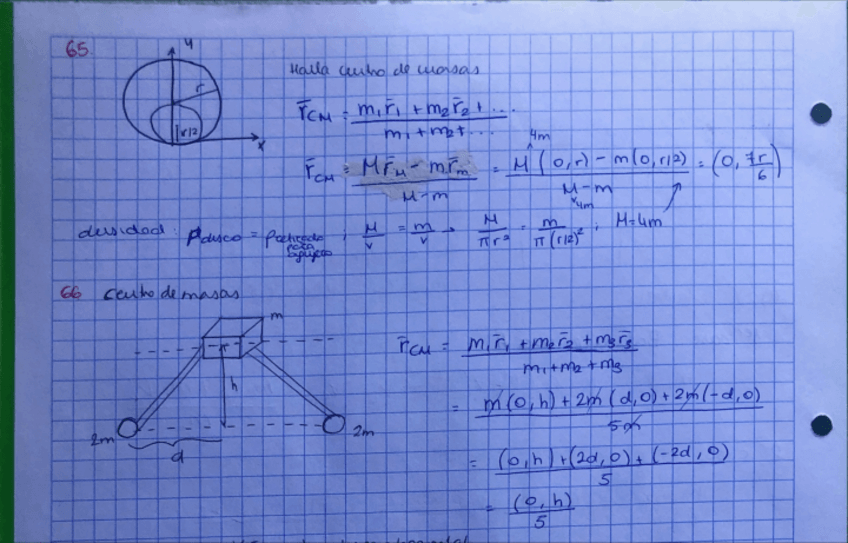 65
y
r
r/2
x
Halla centro de masas
r̄CM = (m₁r̄₁ + m₂r̄₂ + ...) / (m₁ + m₂ + ...)
r̄CM = (M r̄M − m r̄m) / (M − m) = (M (0, r) − m (0, r/2)) / (M − m) = (0, 7r/6)
4m
4m
densidad: ρdisco = ρ ; M/v = m/v → M/πr² = m/π(r/2)² ; M=4m
66 Centro de masas
m
h
2m
2m
d
r̄CM = (m₁r̄₁ + m₂r̄₂ + m₃r̄₃) / (m₁ + m₂ + m₃)
= (m(0, h) + 2m(d, 0) + 2m(-d, 0)) / 5m
= ((0, h) + (2d, 0) + (-2d, 0)) / 5
= (0, h) / 5